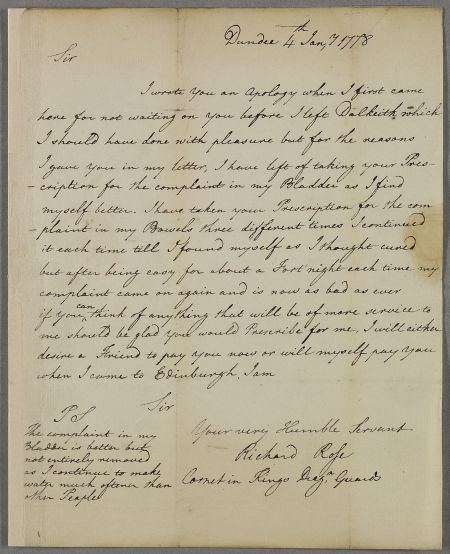 Dundee 4th Jany 1778
Sir
I wrote You an Apology when I first came
here for not waiting on you before I left Dalkeith, which
I should have done with pleasure but for the reasons
I gave you in my letter, I have left of taking your Pres-
-cription for the complaint in my Bladder as I find
myself better. I have taken your Prescription for the com
-plaint in my Bowels three different times I continued
it each time till I found myself as I thought cured
but after being easy for about a Fort night each time my
complaint came on again and is now as bad as ever
if you can think of any thing that will be of more service to
me should be glad you would Prescribe for me, I will either
desire a Friend to pay you now or will myself pay you
when I come to Edinburgh, I am
Sir
Your very Humble Servant
Richard Rose
Cornet in Kings Dragn Guards
PS
The complaint in my
Bladder is better but
not entirely removed
as I continue to make
water much oftener than
other People